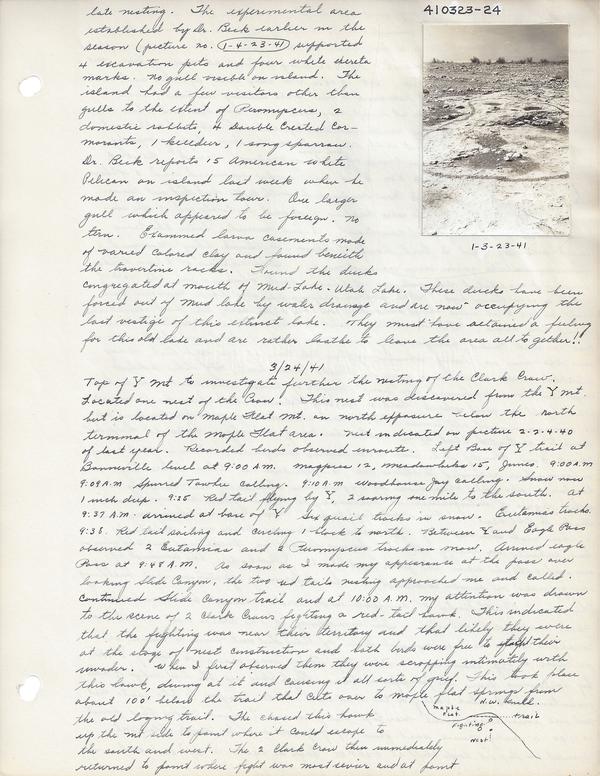 410323-24
late nesting. The experimental area
established by Dr. Beck earlier in the
season (picture no. 1-4-23-41) supported
4 excavation pits and four white
marks. No gull visible on island. The
island had a few visitors other than
gulls to the extent of Peromyscus, 2
domestic rabbits, 4 Double Crested Cor-
morants, 1 killdeer, 1 song sparrow.
Dr. Beck reports 15 American White
Pelican on island last week when he
made an inspection tour. One larger
gull which appeared to be foreign. No
tern. Examined larva casements made
of varied colored clay and found beneith
the travertine rocks. Found the ducks
1-3-23-41
congregated at mouth of Mud-Lake - Utah Lake. These ducks have been
forced out of Mud lake by water drainage and are now occupying the
last vestige of this extinct lake. They must have attained a feeling
for this old lake and are rather loathe to leave the area all to gether!!
3/24/41
Top of Y Mt to investigate further the nesting of the Clark Crow.
Located one nest of the Crow. This nest was discovered from the Y Mt.
but is located on Maple Flat Mt. on north exposure below the north
terminal of the Maple Flat area. Nest indicated on picture 2-2-4-40
of last year. Recorded birds observed enroute. Left Base of Y trail at
Bonneville level at 9:00 A.M. Magpies 12, Meadowlarks 15, Juncos, 9:00 A.M
9:09 A.M Spurred Towhee calling. 9:10 A.M Woodhouse Jay calling. Snow now
1 inch deep. 9:35 Red tail flying by Y, 2 soaring one mile to the south. At
9:37 A.M. arrived at base of Y six quail tracks in snow. Eutamas tracks.
9:38 Red tail sailing and circling 1 block to north. Between Y and Eagle Pass
observed 2 Eutamias and 2 Peromyscus tracks in snow. Arrived eagle
Pass at 9:48 A.M. As soon as I made my appearance at the pass over
looking Slide Canyon, the two red tails nesting approached me and called.
Continued Slide Canyon trail and at 10:00 A.M. my attention was drawn
to the scene of 2 Clark Crows fighting a red-tail hawk. This indicated
that the fighting was near their territory and that likely they were
at the stage of nest construction and both birds were free to their
invader. When I first observed them they were scrapping intimately with
this hawk, diving at it and causing it all sorts of grief. This took place
about 100' below the trail that cuts over to maple flat springs from
the old loging trail. The chased this hawk
up the mt side to point where it could escape to
the south and west. The 2 Clark Crow then immediately
returned to point where fight was most sevier and at point
N.W.
maple
flat.
trail
Fighting
Nest!